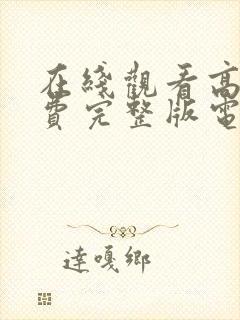 在綫觀看高
費完整版電
達嘎鄉